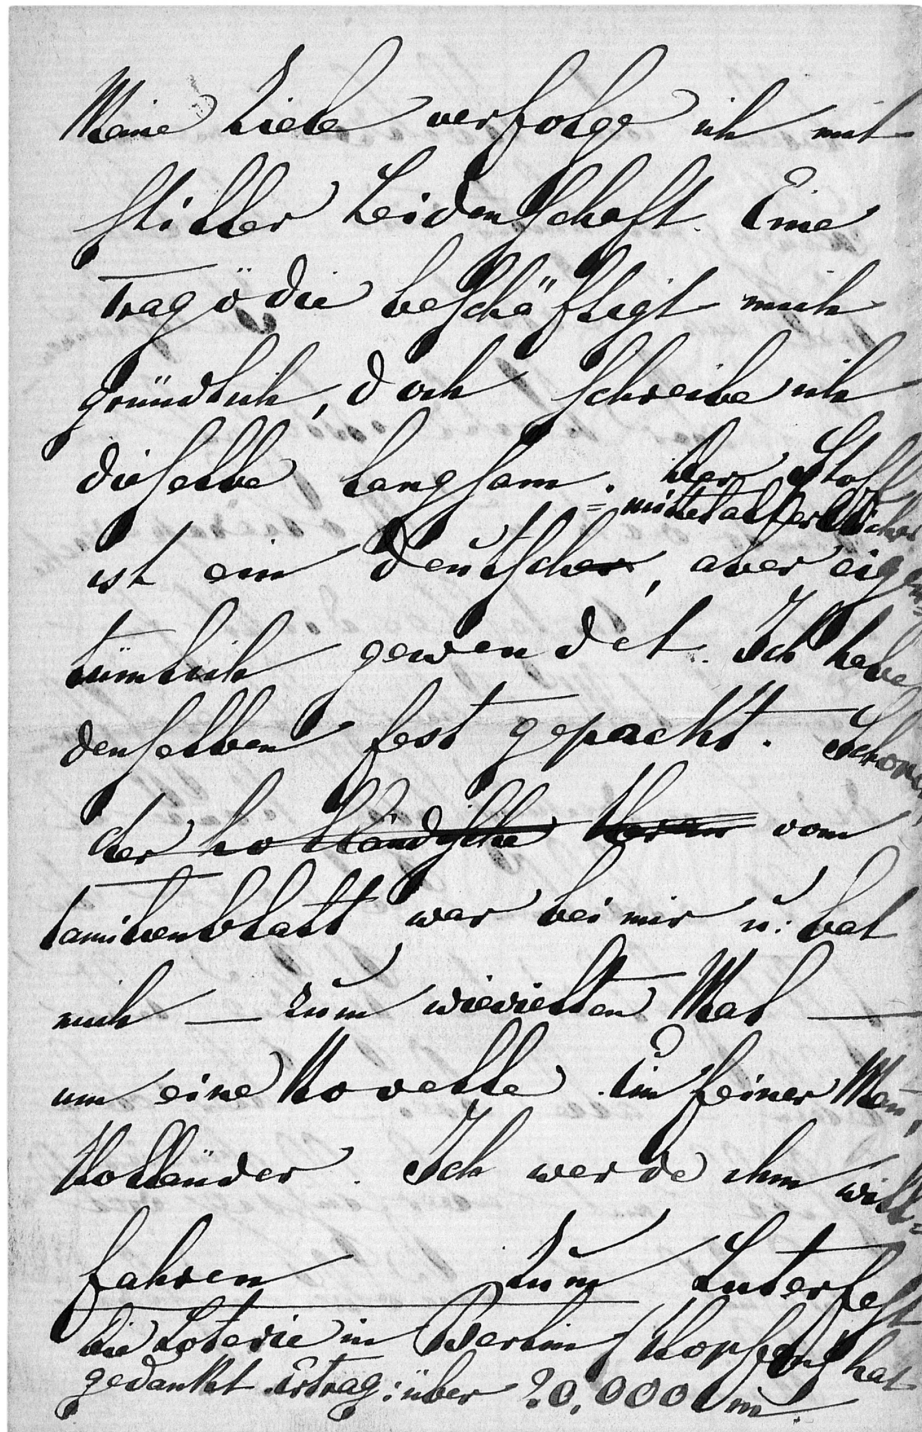 Meine Liebe verfolge ich mit
stiller Leidenschaft. Eine
Tragödie beschäftigt mich
gründlich, doch schreibe ich
dieselbe langsam. Der Stoff
= mittelalterlicher
ist ein deutscher, aber eigen
tümlich gewendet. Ich habe
denselben fest gepackt. Schorer
der holländische vom
Familienblatt war bei mir u: bat
mich — zum wievielten Mal —
um eine Novelle. Ein feiner Man,
Holländer. Ich werde ihm will=
fahren Zum Luterfest
die Loterie in Berlin hat
gedankt. Ertrag: über 20,000 m.